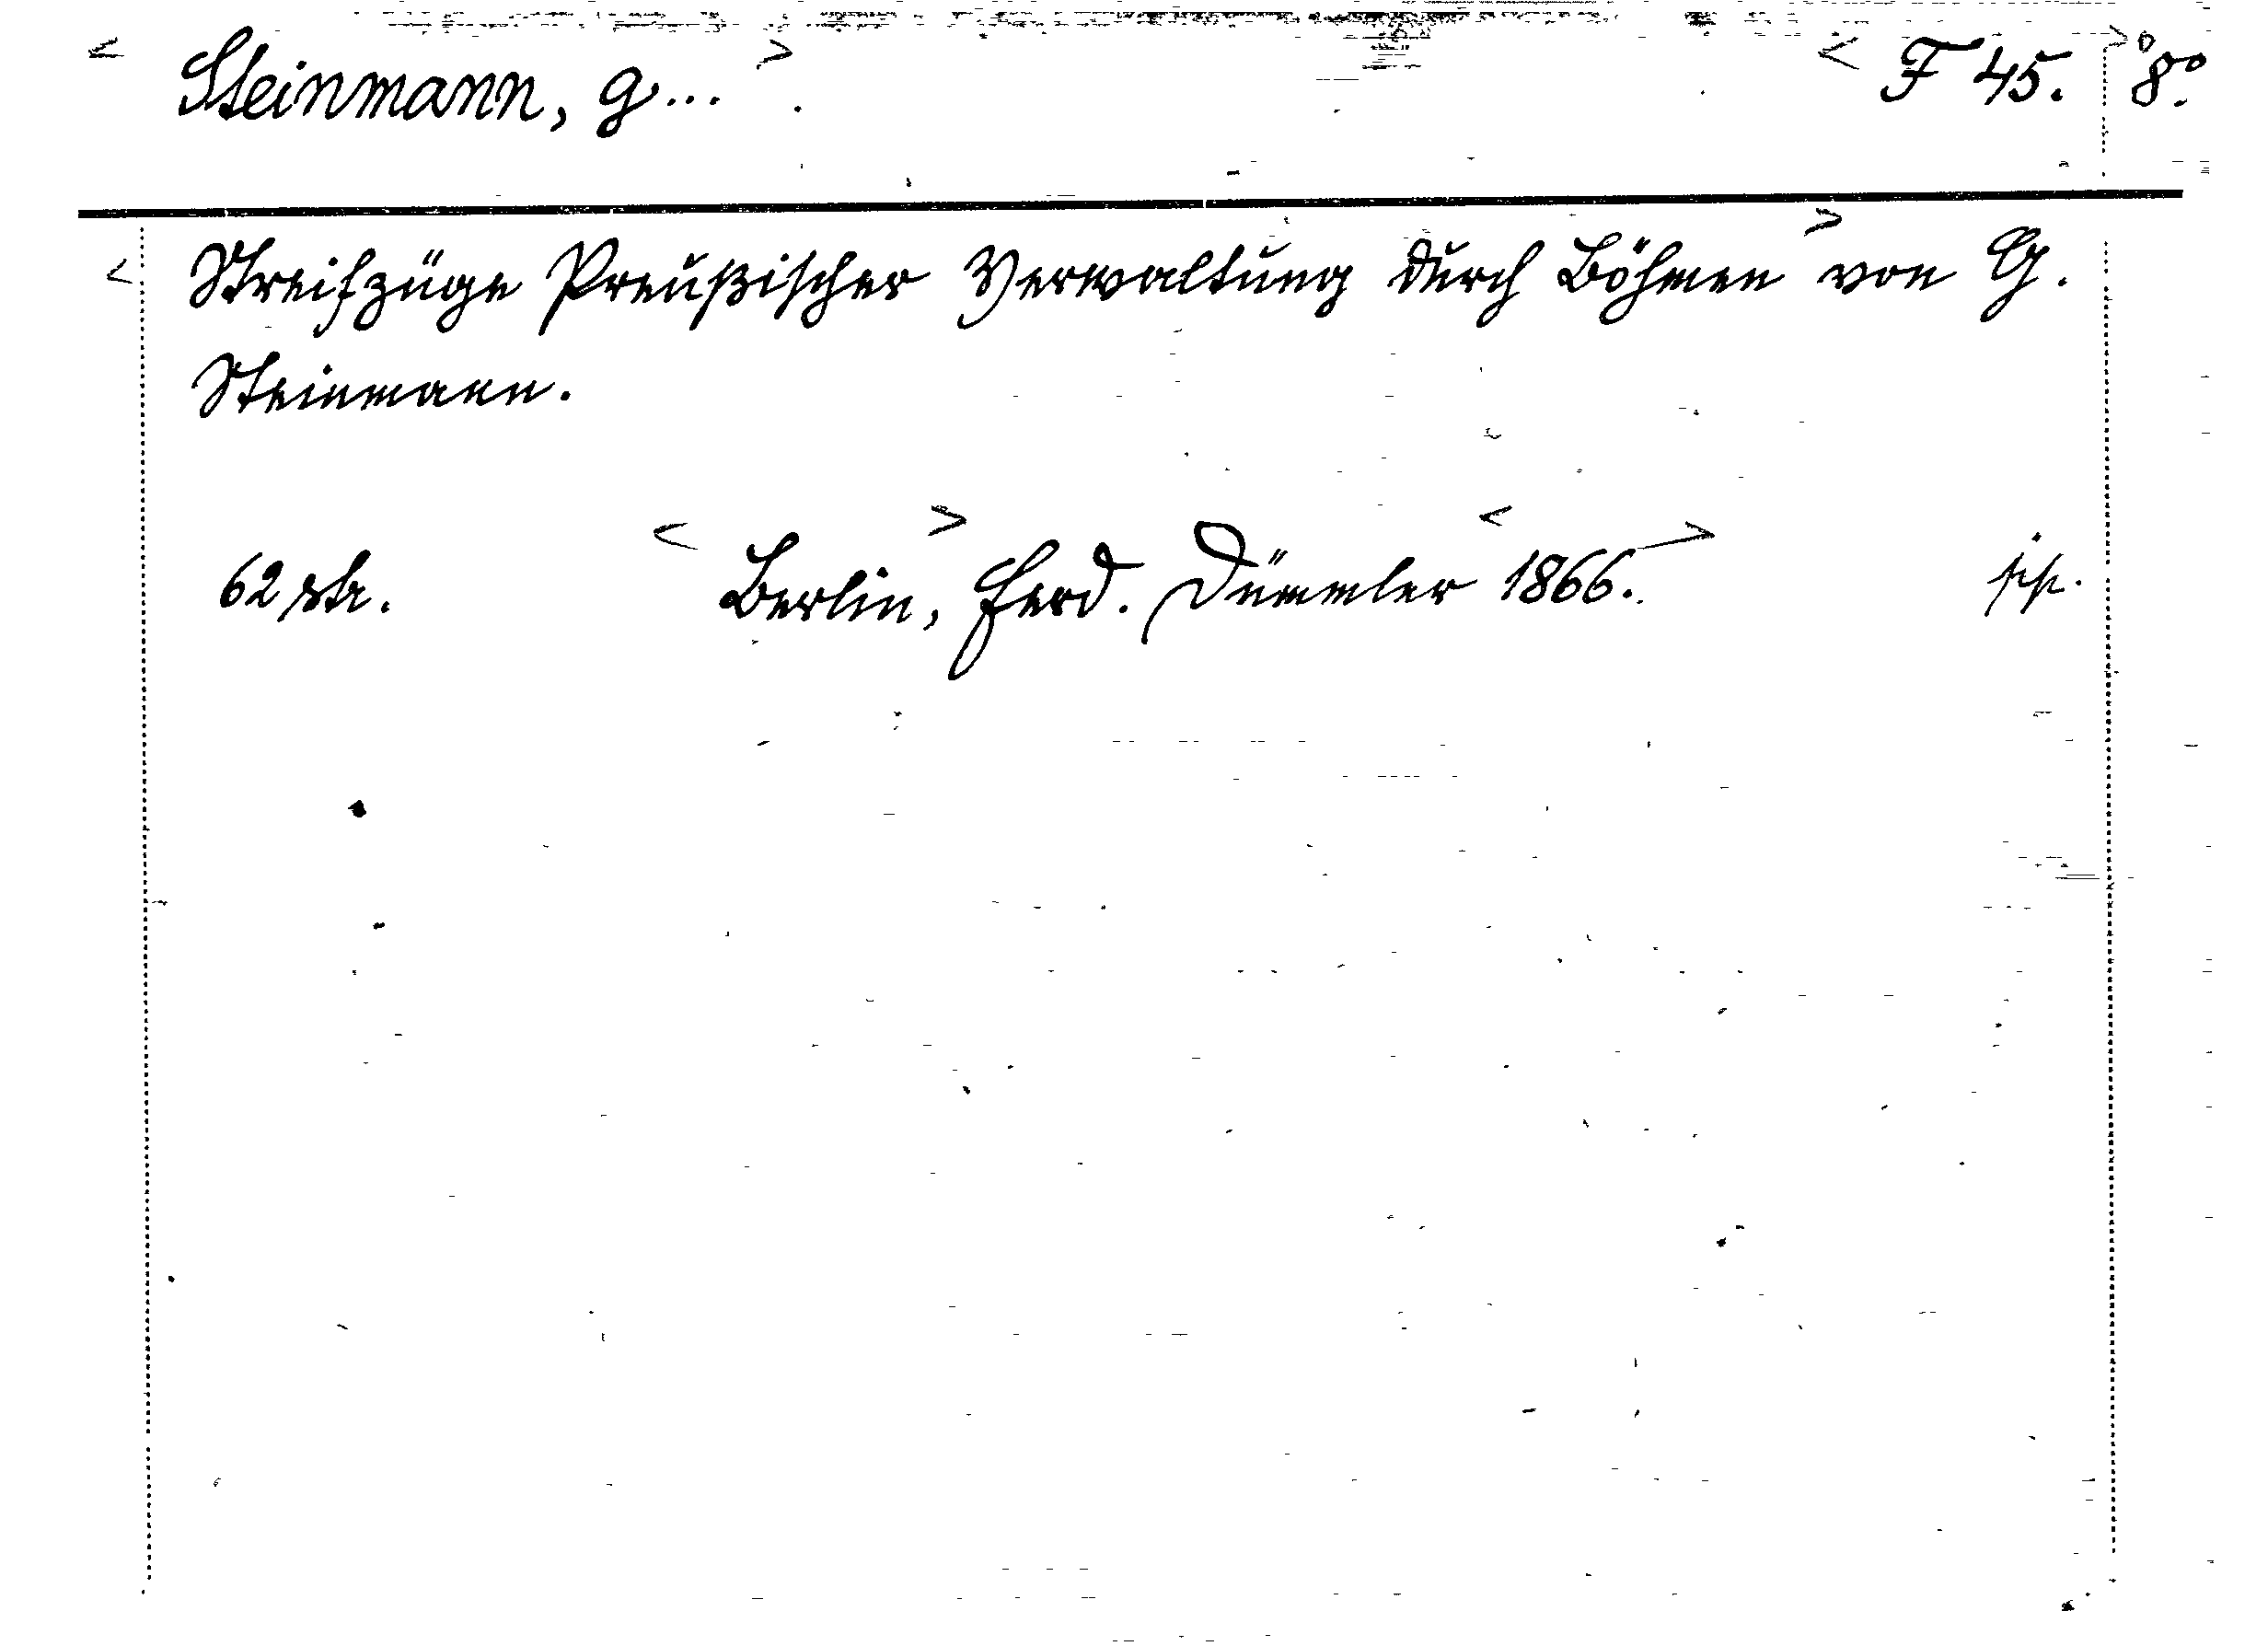 < Steinmann, G... > < F 45. > 8°.
< Streifzüge Preußischer Verwaltung durch Böhmen > von G.
Steinmann.
62 str. < Berlin, > Ferd. Dümmler < 1866. >